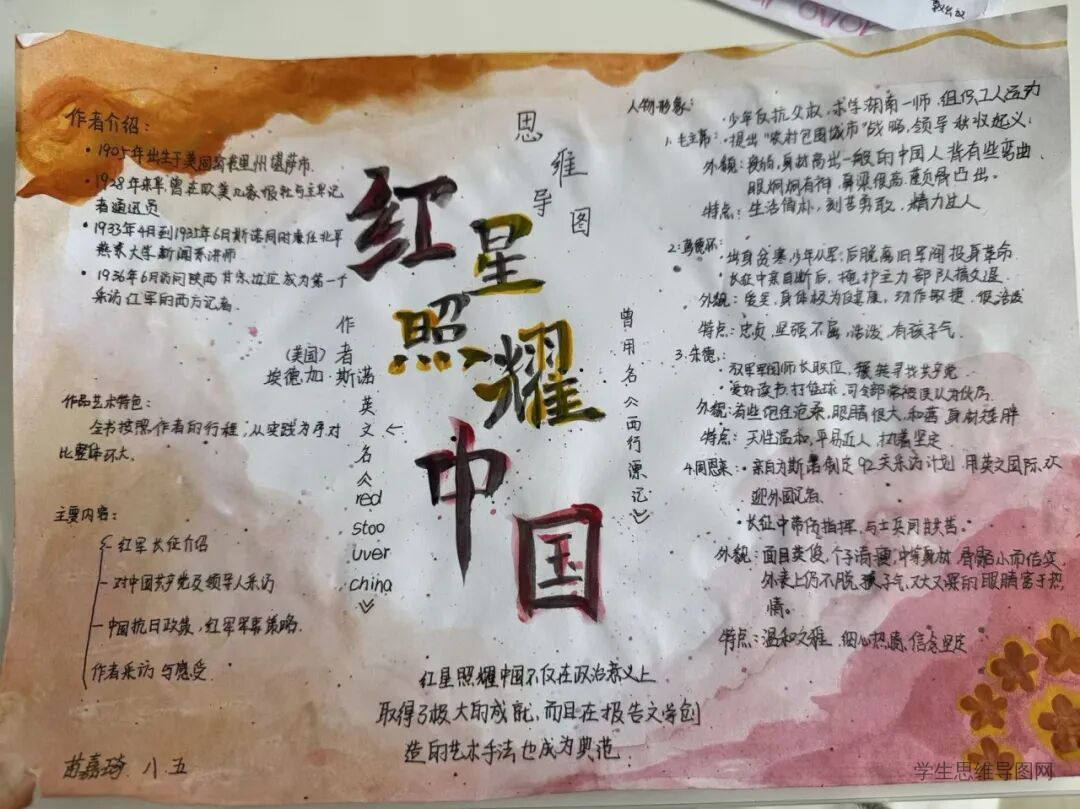 作者介绍：
• 1905年出生于美国密苏里州堪萨市.
• 1928年来华曾在欧美几家报社与主单记
者通迅员
• 1933年4月到1935年6月斯诺同时兼任北平
燕京大学新闻系讲师
• 1936年6月访问陕西甘东边区成为第一个
采访红军的西方记者.
作品艺术特色：
全书按照作者的行程，从实践
比整体环大.
主要内容：
红军长征介绍
对中国共产党及领导人采访
中国抗日政策，红军军事策略.
作者采访与感受
思维导图
红星照耀中国
作者
(美国)
埃德加·斯诺
英文名《red
stoo
uver
china》
曾用名《西行漂记》
人物形象：
• 少年反抗父权，求学湖南一师，组织工人运动
1. 毛主席：• 提出"农村包围城市"战略，领导秋收起义.
外貌：身材高出一般的中国人背有些弯曲.
眼炯炯有神，鼻梁很高.颧骨凸出.
特点：生活俭朴，刻苦勇敢，精力过人
2. 彭德怀：• 出身贫寒少年从军，后脱离旧军阀投身革命
• 长征中亲自断后，掩护主力部队撤
外貌：身体极为健康，动作敏捷
特点：忠贞，坚强不屈，活泼，有孩子气.
3. 朱德：
• 放弃军国师长职位，寻找共产党
• 爱好读书，打篮球，司令部常被误认为伙房
外貌：眼睛很大，和蔼，身材矮胖
特点：天性温和，平易近人，执着坚定
4. 周恩来：• 亲自为斯诺制定92天采访计划，用英文国际，欢
迎外国记者.
• 长征中带伤指挥，与士兵同甘共苦.
外貌：面目英俊，个子清瘦，中等身材，小而结实
外表上仍不脱孩子气，又大又深的眼睛富于热
情。
特点：温和文雅，细心热情，信念坚定
红星照耀中国不仅在政治意义上
取得了极大的成就，而且在报告文学创
造的艺术手法也成为典范.
嘉琦 八.五
学生思维导图网